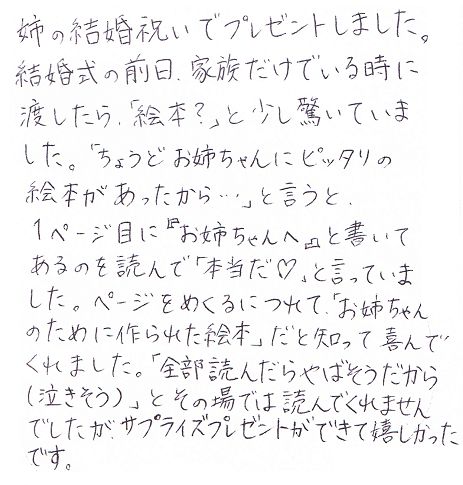 姉の結婚祝いでプレゼントしました。
結婚式の前日、家族だけでいる時に
渡したら、「絵本?」と少し驚いていま
した。「ちょうどお姉ちゃんにピッタリの
絵本があったから…」と言うと、
1ページ目に『お姉ちゃんへ』と書いて
あるのを読んで「本当だ♡」と言っていま
した。ページをめくるにつれて、「お姉ちゃん
のために作られた絵本」だと知って喜んで
くれました。「全部読んだらやばそうだから
(泣きそう)」とその場では読んでくれません
でしたが、サプライズプレゼントができて嬉しかった
です。